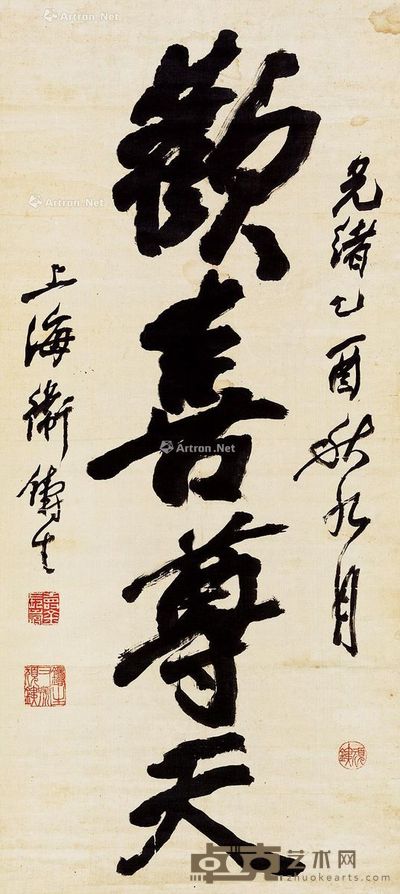 光緒乙酉秋九月
歡喜尊天
上海衛鑄生
Artron.Net
Artron.Net
Artron.Net
Artron.Net
点克艺术网
zhuokearts.com